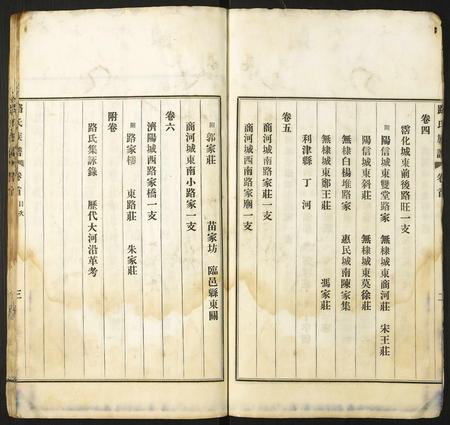 卷四
霑化城東前後路旺一支
附 陽信城東雙堂路家 無棣城東商河莊 宋王莊
陽信城東斜莊 無棣城東莫徐莊
無棣白楊堆路家 惠民城南陳家集
無棣城東鄭王莊 馮家莊
利津縣丁河
卷五
商河城南路家莊一支
商河城西南路家廟一支
附 郭家莊 苗家坊 臨邑縣東關
商河城東南小路家一支
卷六
濟陽城西路家橋一支
附 路家樓 東路莊 朱家莊
附卷
路氏集詠錄 歷代大河沿革考
路氏族譜 卷首 目次 三